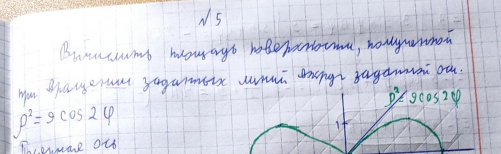 №5
Вычислить площадь поверхности, полученной
при вращении заданных линий вокруг заданной оси.
ρ²=9cos2φ
ρ²=9cos2φ
1
Полярная ось